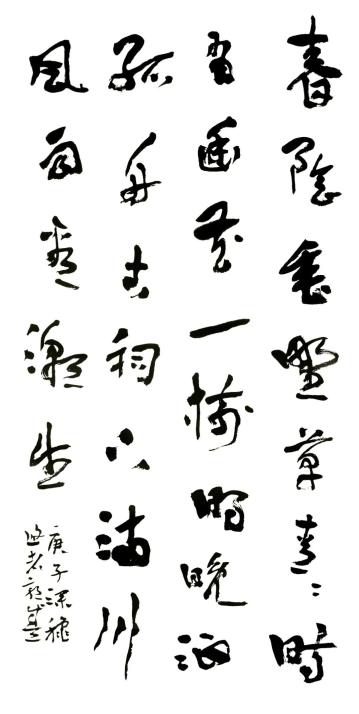 春陰垂野草青〻時
有幽花一樹明晚泊
孤舟古祠下滿川
風雨看潮生
庚子深秋